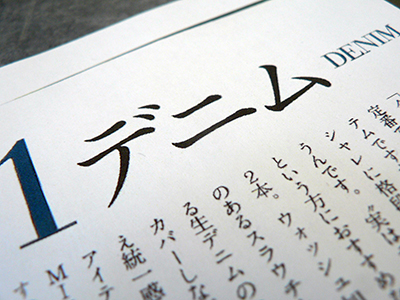 1 デニム DENIM
定番
テムです
シャレに格
うんです。
という方におすすめ
2本。ウォッシュ
のあるスラウチ
る生デニムの
カバーしな
え統一感
アイテ
MI
す